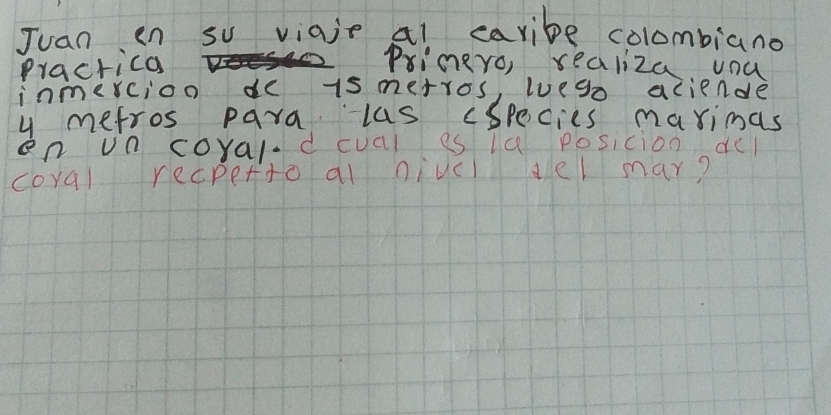 Juan en su viaje al caribe colombiano
Practica Primero, realiza una
inmercion de 15 metros, luego aciende
4 metros para las especies marinas
en un coral. d cual es la posicion del
coral recpetto al nivel del mar?